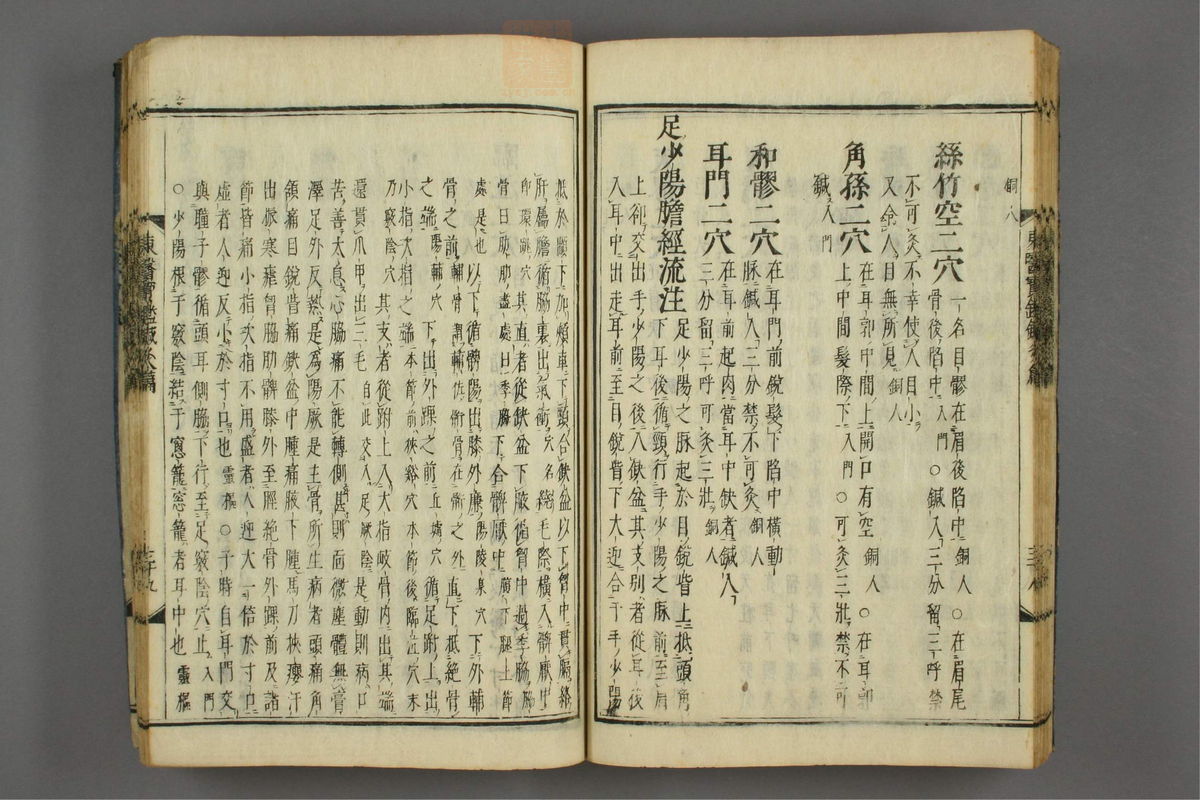 銅人
絲竹空二穴 一名目髎在眉後陷中銅人○在眉尾
骨後陷中入門○鍼入三分留三呼禁
不可灸不幸使人目小
又令人目無所見銅人
角孫二穴 在耳郭中間上開口有空銅人○在耳郭
上中間髮際下入門○可灸三壯禁不可
鍼入門
和髎二穴 在耳門前銳髮下陷中橫動
脉鍼入三分禁不可灸銅人
耳門二穴 在耳前起肉當耳中缺者鍼入
三分留三呼可灸三壯銅人
足少陽膽經流注 足少陽之脉起於目銳眥上抵頭角
下耳後循頸行手少陽之脉前至肩
上却交出手少陽之後入缺盆其支別者從耳後
入耳中出走耳前至目銳眥下大迎合于手少陽
抵於䪼下加頰車下頸合缺盆以下胷中貫膈絡
肝屬膽循脇裏出氣衝穴名繞毛際橫入髀厭中
即環跳穴其直者從缺盆下腋循胷中過季脇脇
骨曰肋肋盡處曰季脇下合髀厭中廣下腿上節
處是也以下循髀陽出膝外廉陽陵泉穴下外輔
骨之前輔骨謂輔佐䯒骨在䯒之外直下抵絶骨
之端陽輔穴下出外踝之前丘墟穴循足跗上出
小指次指之端本節前俠谿穴本節後臨泣穴末
乃竅陰穴其支者從跗上入大指歧骨內出其端
還貫爪甲出三毛自此交入足厥陰是動則病口
苦善太息心脇痛不能轉側甚則面微塵體無膏
澤足外反熱是爲陽厥是主骨所生病者頭痛角
頷痛目銳眥痛缺盆中腫痛腋下腫馬刀挾癭汗
出振寒瘧胷脇肋髀膝外至脛絶骨外踝前及諸
節皆痛小指次指不用盛者人迎大一倍於寸口
虛者人迎反小於寸口也靈樞○子時自耳門交
與瞳子髎循頭耳側脇下行至足竅陰穴止入門
○少陽根于竅陰結于窻籠窻籠者耳中也靈樞